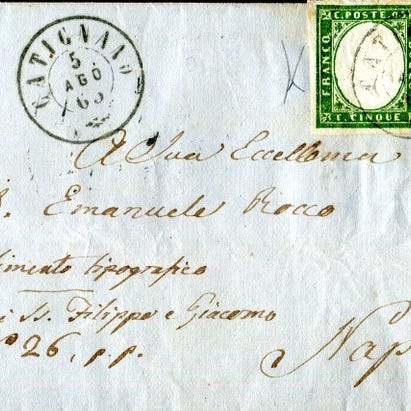 GATIGNANO
5
AGO
63
C. POSTE
FRANCO
C. CINQUE
A Sua Eccellenza
Emanuele Rocco
limento tipografico
i SS. Filippo e Giacomo
26, p.p.
Nap